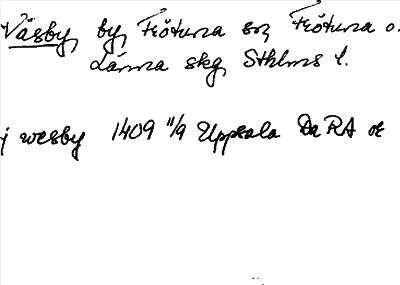 Väsby, by, Frötuna sn, Frötuna o.
Länna skg, Sthlms l.
j wesby 1409 11/9 Uppsala Da RA or